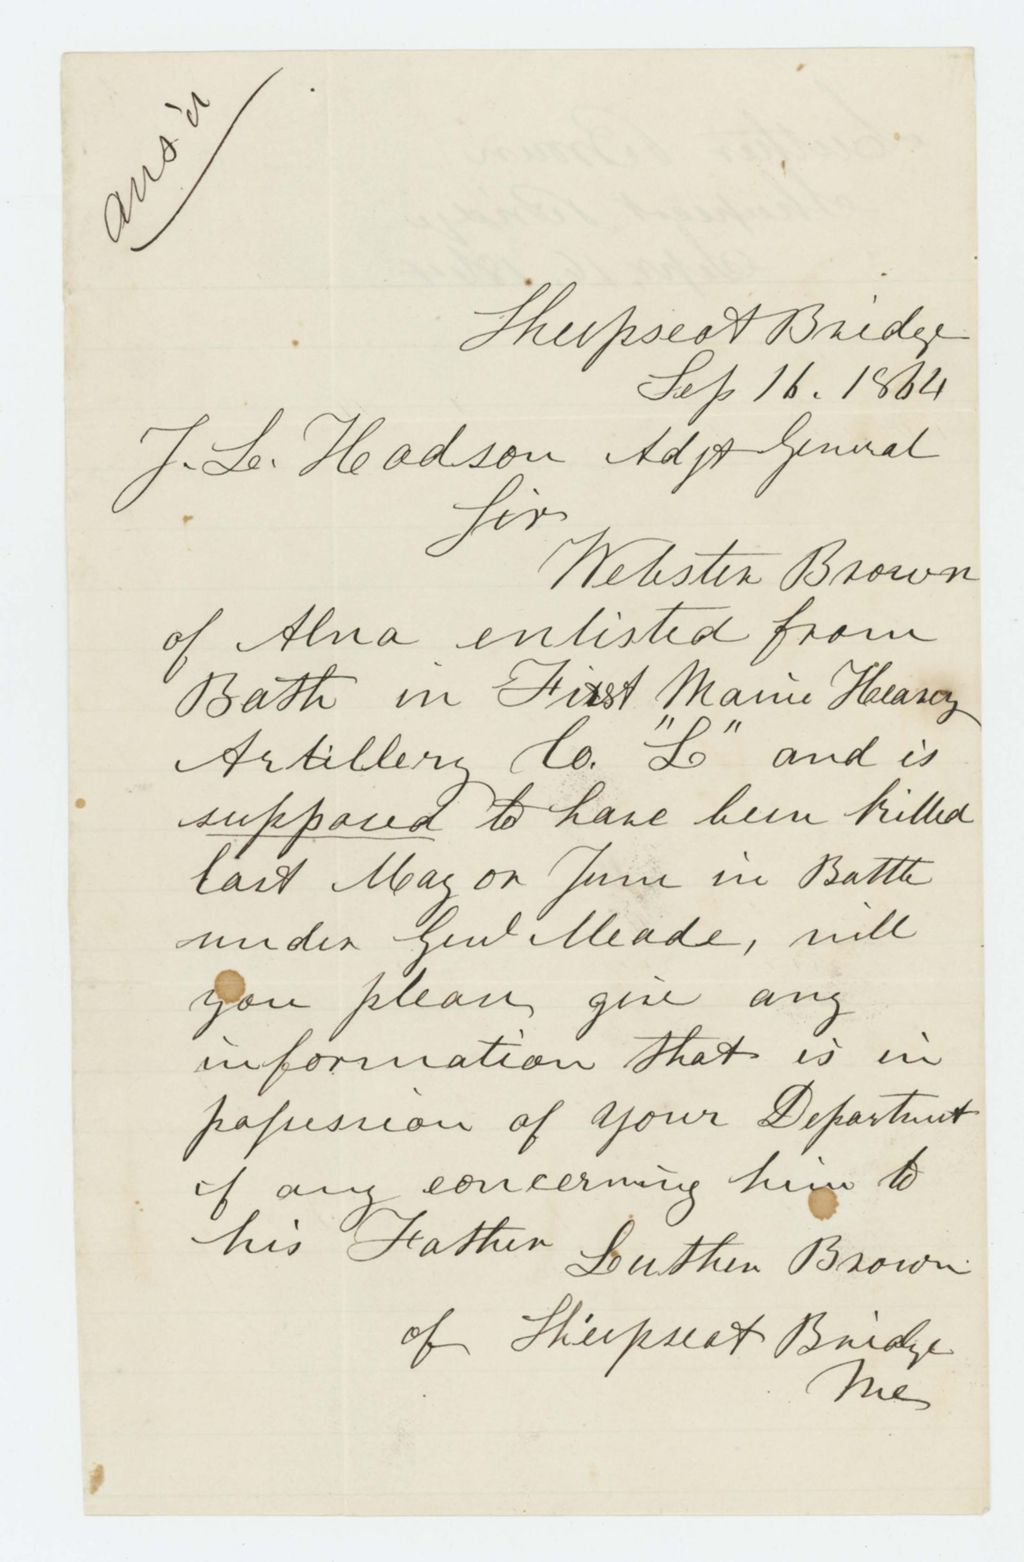 ans'd
Sheepscot Bridge
Sep 16. 1864
J. L. Hodsdon Adjt General
Sir
Webster Brown
of Alna enlisted from
Bath in First Maine Heavy
Artillery Co. "L" and is
supposed to have been killed
last May or June in Battle
under Genl Meade, will
you please give any
information that is in
possession of your Department
if any concerning him to
his Father Luther Brown
of Sheepscot Bridge
Me